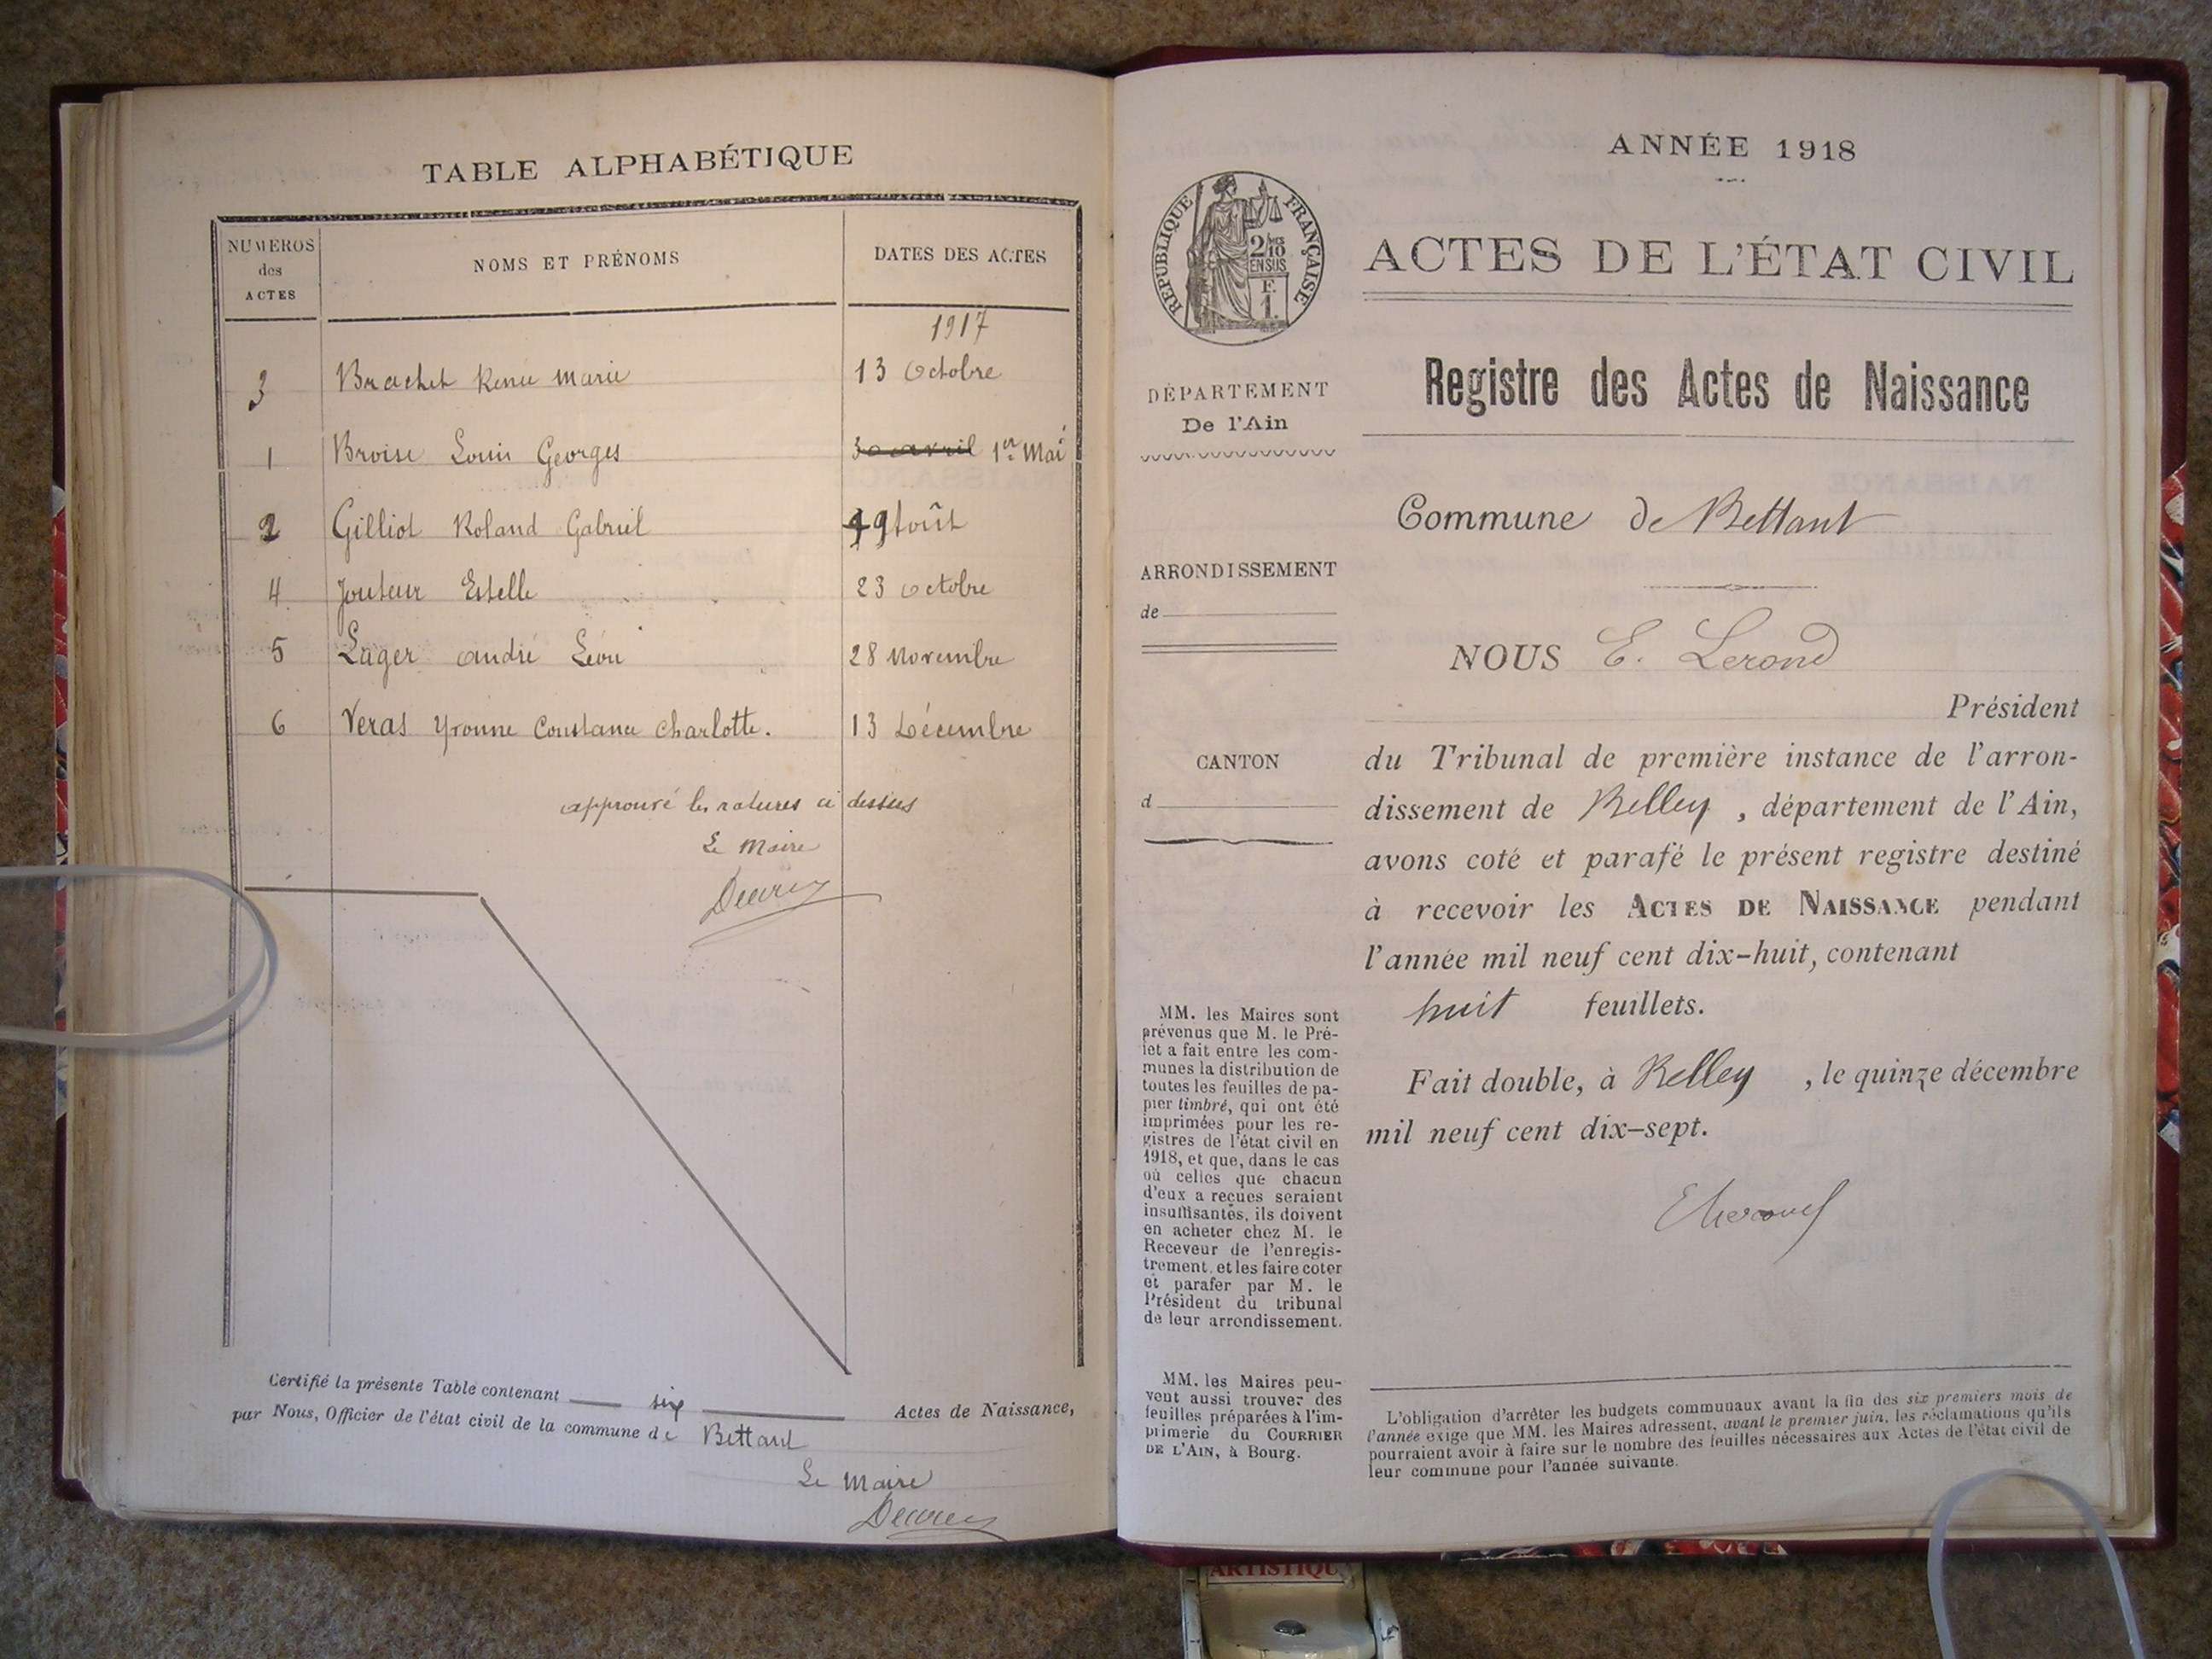 TABLE ALPHABÉTIQUE
NUMEROS
des
ACTES
NOMS ET PRÉNOMS
DATES DES ACTES
1917
3 Brachet Renée Marie 13 Octobre
1 Broise Louis Georges 30 avril 1er Mai
2 Gilliot Roland Gabriel 9 Août
4 Jouteur Estelle 23 octobre
5 Lager andré Léon 28 Novembre
6 Veras Yvonne Constance Charlotte. 13 Décembre
approuvé les ratures ci dessus
Le Maire
Certifié la présente Table contenant six Actes de Naissance,
par Nous, Officier de l'état civil de la commune de Bettant
Le Maire
ANNÉE 1918
RÉPUBLIQUE FRANÇAISE
2/10
EN SUS
F.
1.
ACTES DE L'ÉTAT CIVIL
Registre des Actes de Naissance
DÉPARTEMENT
De l'Ain
Commune de Bettant
ARRONDISSEMENT
de
NOUS E. Lerond
Président
CANTON
d
du Tribunal de première instance de l'arron-
dissement de Belley, département de l'Ain,
avons coté et parafé le présent registre destiné
à recevoir les ACTES DE NAISSANCE pendant
l'année mil neuf cent dix-huit, contenant
huit feuillets.
Fait double, à Belley, le quinze décembre
mil neuf cent dix-sept.
MM. les Maires sont
prévenus que M. le Pré-
fet a fait entre les com-
munes la distribution de
toutes les feuilles de pa-
pier timbré, qui ont été
imprimées pour les re-
gistres de l'état civil en
1918, et que, dans le cas
où celles que chacun
d'eux a reçues seraient
insuffisantes, ils doivent
en acheter chez M. le
Receveur de l'enregis-
trement, et les faire coter
et parafer par M. le
Président du tribunal
de leur arrondissement.
MM. les Maires peu-
vent aussi trouver des
feuilles préparées à l'im-
primerie du COURRIER
DE L'AIN, à Bourg.
L'obligation d'arrêter les budgets communaux avant la fin des six premiers mois de
l'année exige que MM. les Maires adressent, avant le premier juin, les réclamations qu'ils
pourraient avoir à faire sur le nombre des feuilles nécessaires aux Actes de l'état civil de
leur commune pour l'année suivante.